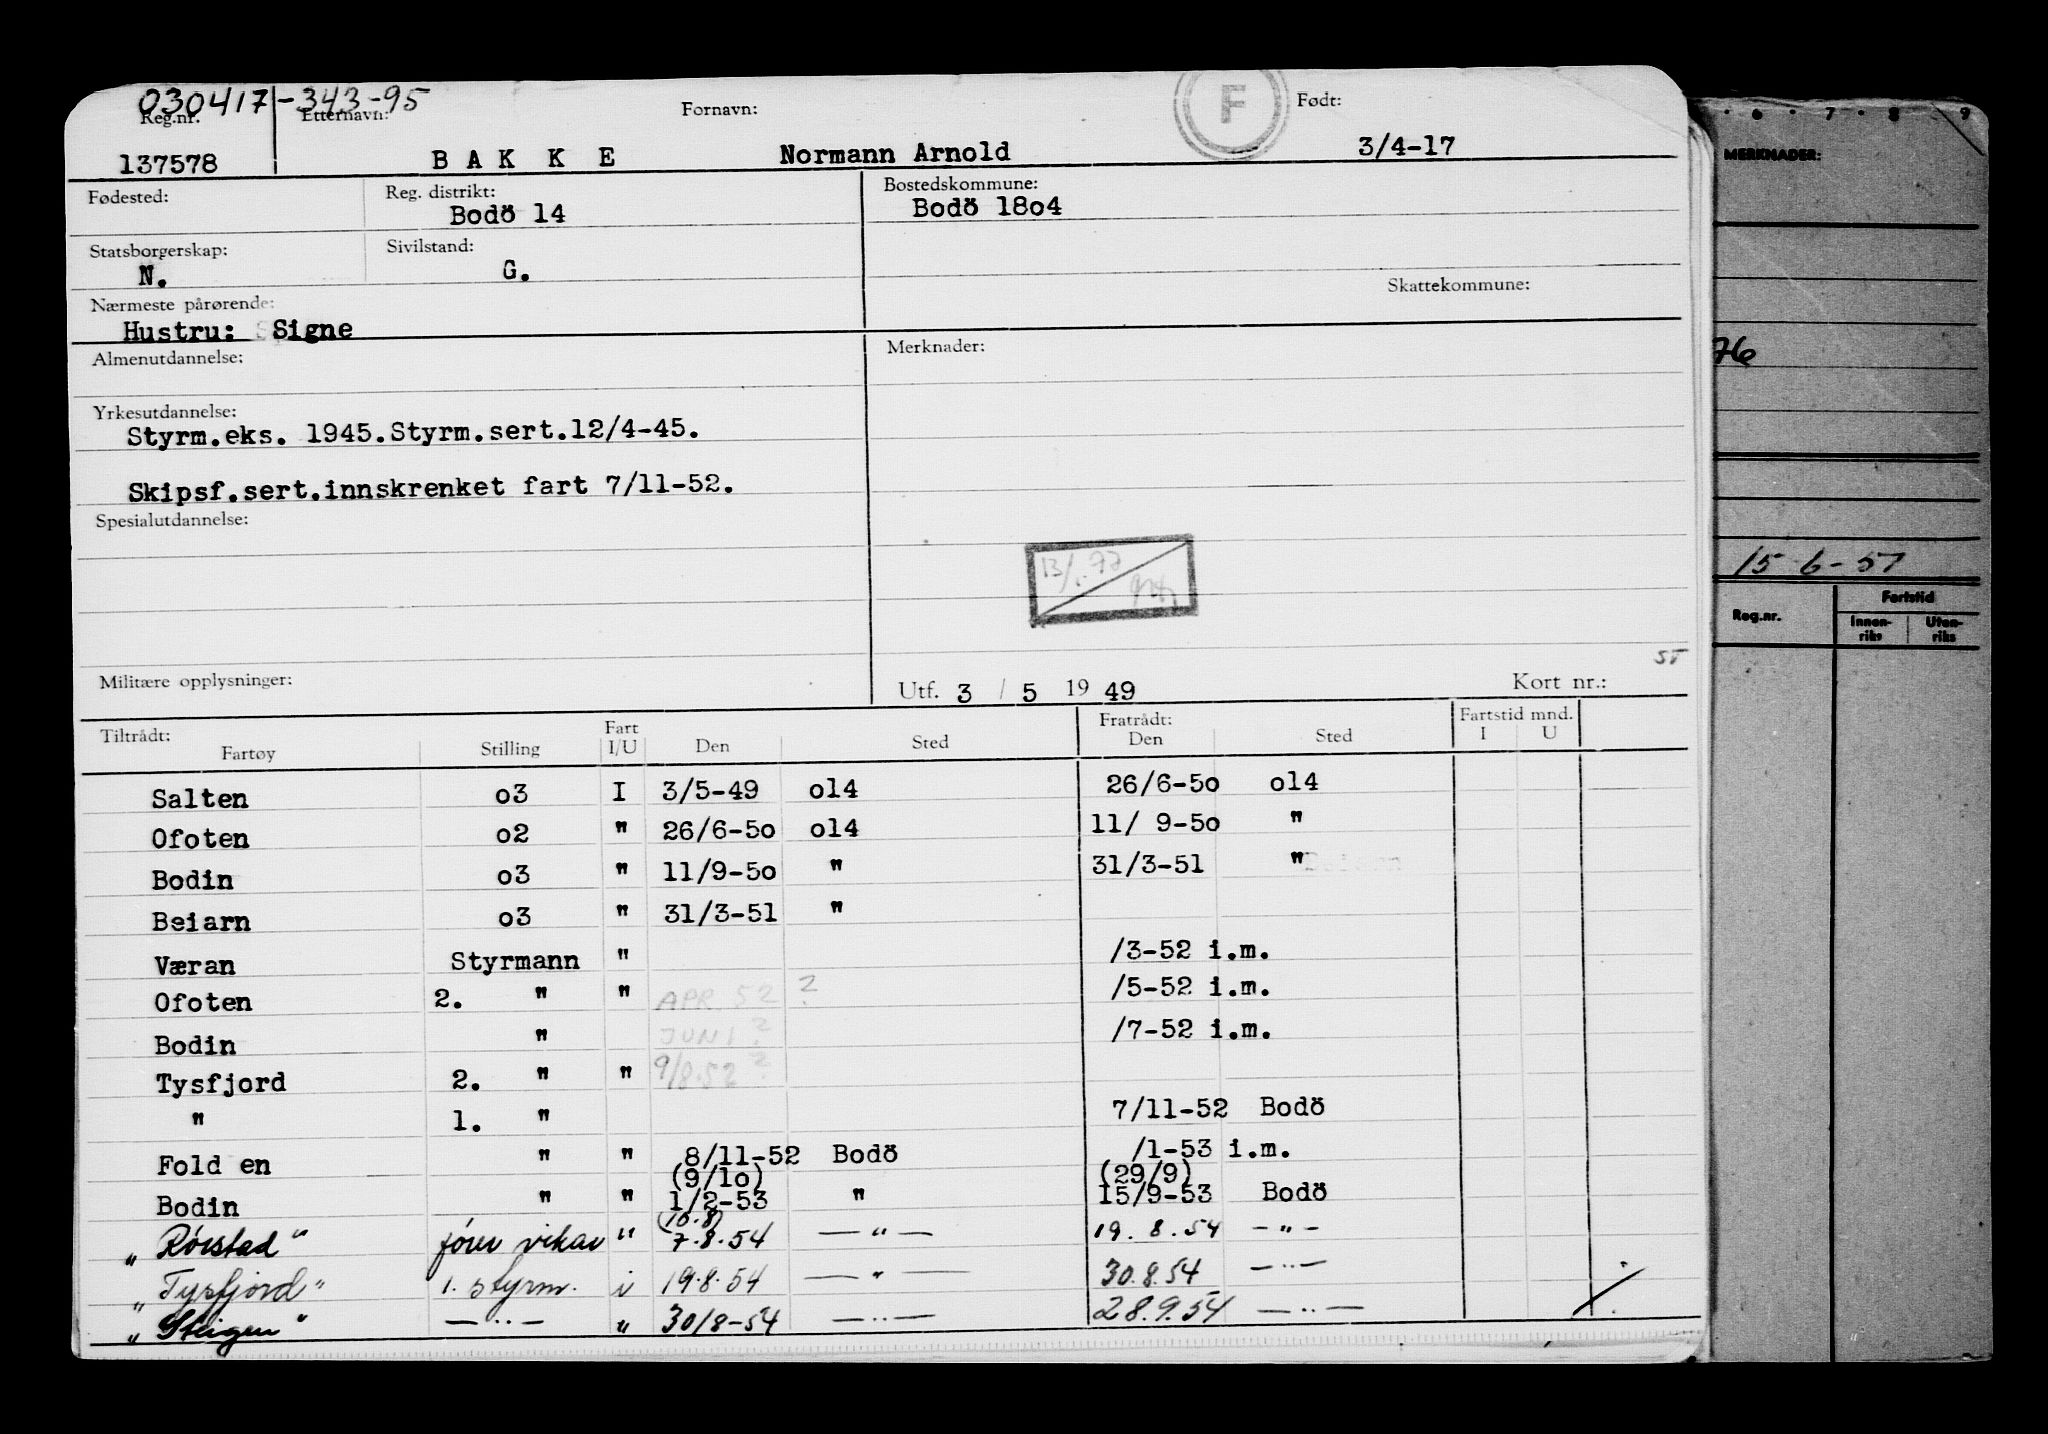 030417-343-95
Reg.nr. Etternavn: Fornavn: F Født:
137578 B A K K E Normann Arnold 3/4-17
Fødested: Reg. distrikt: Bostedskommune:
Bodö 14 Bodö 18o4
Statsborgerskap: Sivilstand:
N. G.
Nærmeste pårørende: Skattekommune:
Hustru: Signe
Almenutdannelse: Merknader:
Yrkesutdannelse:
Styrm.eks. 1945.Styrm.sert.12/4-45.
Skipsf.sert.innskrenket fart 7/11-52.
Spesialutdannelse:
Militære opplysninger: Utf. 3 / 5 19 49 Kort nr.:
Tiltrådt: Fart Fratrådt: Fartstid mnd.
Fartøy Stilling I/U Den Sted Den Sted I U
Salten o3 I 3/5-49 o14 26/6-5o o14
Ofoten o2 " 26/6-5o o14 11/ 9-5o "
Bodin o3 " 11/9-5o " 31/3-51 "
Beiarn o3 " 31/3-51 "
Væran Styrmann " /3-52 i.m.
Ofoten 2. " " APR. 52 ? /5-52 i.m.
Bodin " JUNI ? /7-52 i.m.
Tysfjord 2. " " 9/8-52 ?
" 1. " 7/11-52 Bodö
Fold en " " 8/11-52 Bodö /1-53 i.m.
(9/1o) (29/9)
Bodin " " 1/2-53 " 15/9-53 Bodö
(10.8)
„ Rørstad " fører vikar " 7.8.54 — " — 19. 8. 54 - " -
„ Tysfjord " 1. styrm. i 19.8.54 — " — 30.8.54 — " —
„ Steigen " — " — " 30/8-54 — " — 28.9.54 — " —
6 · 7 · 8 · 9
MERKNADER:
76
15-6-57
Reg.nr. Fartstid
Innen-riks Uten-riks